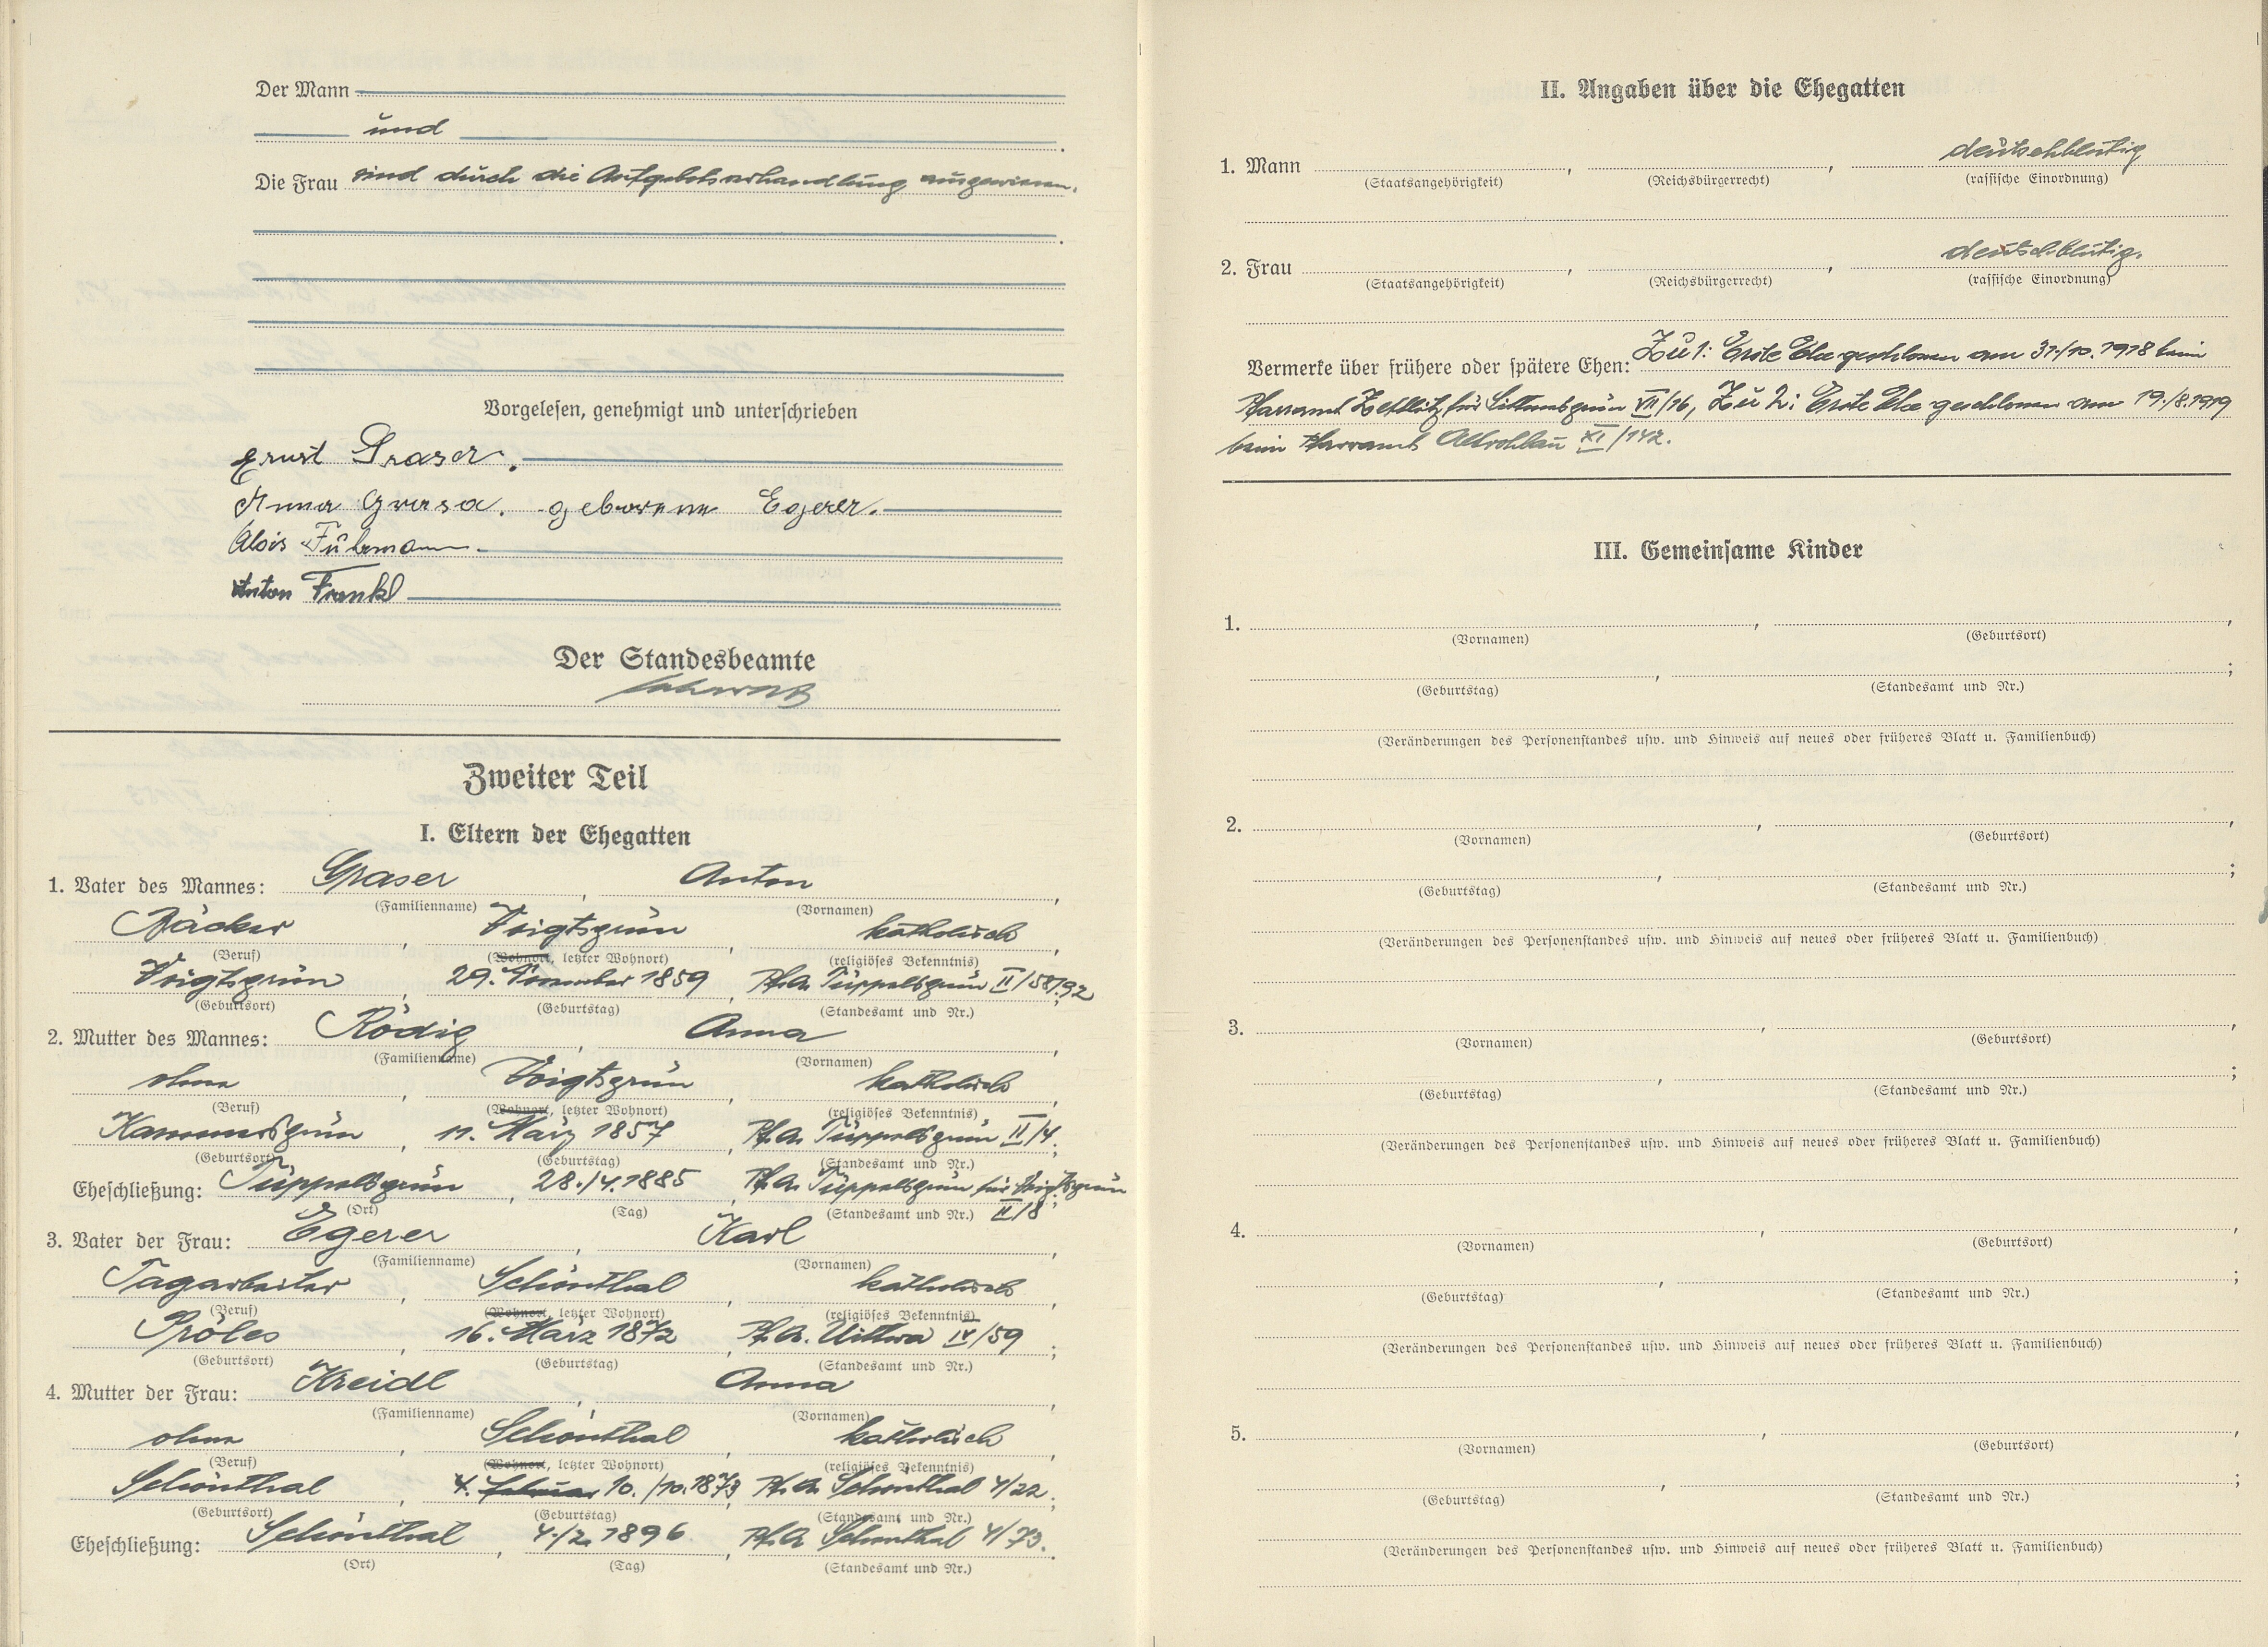 Der Mann
und
Die Frau sind durch die Aufgebotsverhandlung ausgewiesen.
Vorgelesen, genehmigt und unterschrieben
Ernst Graser.
Anna Grasa. geborene Egerer.
Alois Fuhrmann.
Anton Frankl
Der Standesbeamte
Zweiter Teil
I. Eltern der Ehegatten
1. Vater des Mannes: Graser, Anton,
(Familienname) (Vornamen)
Bäcker, Voigtsgrün, katholisch,
(Beruf) (Wohnort, letzter Wohnort) (religiöses Bekenntnis)
Voigtsgrün, 29. November 1859, Pf.A. Tüppelsgrün II/58/92;
(Geburtsort) (Geburtstag) (Standesamt und Nr.)
2. Mutter des Mannes: Rödig, Anna,
(Familienname) (Vornamen)
ohne, Voigtsgrün, katholisch,
(Beruf) (Wohnort, letzter Wohnort) (religiöses Bekenntnis)
Kammersgrün, 11. März 1857, Pf.A. Tüppelsgrün II/4;
(Geburtsort) (Geburtstag) (Standesamt und Nr.)
Eheschließung: Tüppelsgrün, 28./4.1885, Pf.A. Tüppelsgrün für Voigtsgrün
(Ort) (Tag) (Standesamt und Nr.) II/8;
3. Vater der Frau: Egerer, Karl,
(Familienname) (Vornamen)
Tagarbeiter, Schönthal, katholisch,
(Beruf) (Wohnort, letzter Wohnort) (religiöses Bekenntnis)
Pröles, 16. März 1872, Pf.A. Uittwa IV/59;
(Geburtsort) (Geburtstag) (Standesamt und Nr.)
4. Mutter der Frau: Kreidl, Anna,
(Familienname) (Vornamen)
ohne, Schönthal, katholisch,
(Beruf) (Wohnort, letzter Wohnort) (religiöses Bekenntnis)
Schönthal, 4. Februar 10./10.1873, Pf.A. Schönthal 4/22;
(Geburtsort) (Geburtstag) (Standesamt und Nr.)
Eheschließung: Schönthal, 4./2.1896, Pf.A Schönthal 4/73.
(Ort) (Tag) (Standesamt und Nr.)
II. Angaben über die Ehegatten
1. Mann , , deutschblütig
(Staatsangehörigkeit) (Reichsbürgerrecht) (rassische Einordnung)
2. Frau , , deutschblütig.
(Staatsangehörigkeit) (Reichsbürgerrecht) (rassische Einordnung)
Vermerke über frühere oder spätere Ehen: Zu 1: Erste Ehe geschlossen am 31./10.1918 beim
Pfarramt Zettlitz für Sittmesgrün VII/16, Zu 2: Erste Ehe geschlossen am 19./8.1919
beim Pfarramt Altrohlau XI/142.
III. Gemeinsame Kinder
1. , ,
(Vornamen) (Geburtsort)
, ;
(Geburtstag) (Standesamt und Nr.)
(Veränderungen des Personenstandes usw. und Hinweis auf neues oder früheres Blatt u. Familienbuch)
2. , ,
(Vornamen) (Geburtsort)
, ;
(Geburtstag) (Standesamt und Nr.)
(Veränderungen des Personenstandes usw. und Hinweis auf neues oder früheres Blatt u. Familienbuch)
3. , ,
(Vornamen) (Geburtsort)
, ;
(Geburtstag) (Standesamt und Nr.)
(Veränderungen des Personenstandes usw. und Hinweis auf neues oder früheres Blatt u. Familienbuch)
4. , ,
(Vornamen) (Geburtsort)
, ;
(Geburtstag) (Standesamt und Nr.)
(Veränderungen des Personenstandes usw. und Hinweis auf neues oder früheres Blatt u. Familienbuch)
5. , ,
(Vornamen) (Geburtsort)
, ;
(Geburtstag) (Standesamt und Nr.)
(Veränderungen des Personenstandes usw. und Hinweis auf neues oder früheres Blatt u. Familienbuch)